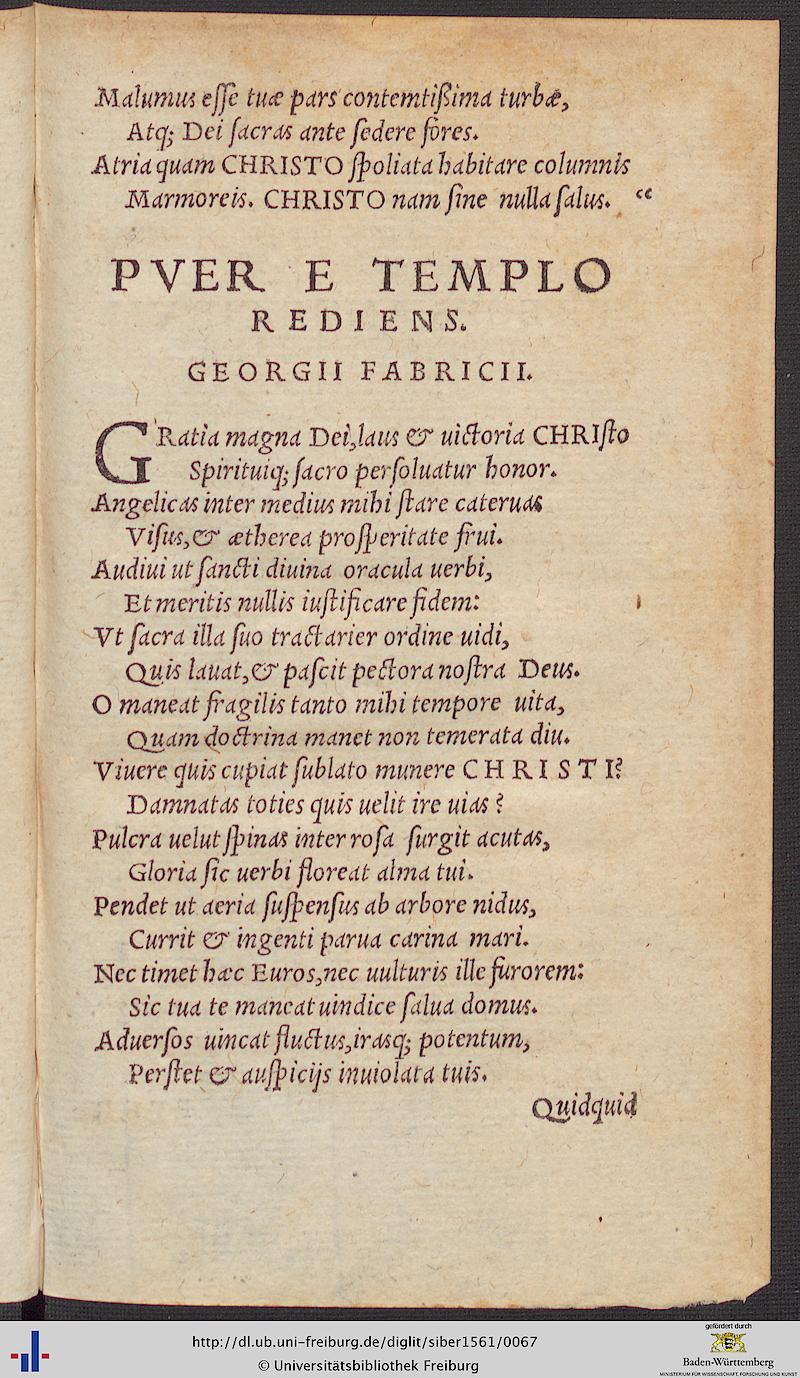 Malumus eſſe tuæ pars contemtiſsima turbæ,
Atq; Dei ſacras ante ſedere fores.
Atria quam CHRISTO ſpoliata habitare columnis
Marmoreis. CHRISTO nam ſine nulla ſalus. “
PVER E TEMPLO
REDIENS.
GEORGII FABRICII.
GRatia magna Dei, laus & uictoria CHRIſto
Spirituiq; ſacro perſoluatur honor.
Angelicas inter medius mihi ſtare cateruas
Viſus, & ætherea proſperitate frui.
Audiui ut ſancti diuina oracula uerbi,
Et meritis nullis iuſtificare fidem:
Vt ſacra illa ſuo tractarier ordine uidi,
Quis lauat, & paſcit pectora noſtra Deus.
O maneat fragilis tanto mihi tempore uita,
Quam doctrina manet non temerata diu.
Viuere quis cupiat ſublato munere CHRISTI?
Damnatas toties quis uelit ire uias?
Pulcra uelut ſpinas inter roſa ſurgit acutas,
Gloria ſic uerbi floreat alma tui.
Pendet ut aeria ſuſpenſus ab arbore nidus,
Currit & ingenti parua carina mari.
Nec timet hæc Euros, nec uulturis ille furorem:
Sic tua te maneat uindice ſalua domus.
Aduerſos uincat fluctus, irasq; potentum,
Perſtet & auſpicijs inuiolata tuis.
Quidquid
http://dl.ub.uni-freiburg.de/diglit/siber1561/0067
© Universitätsbibliothek Freiburg
gefördert durch
Baden-Württemberg
MINISTERIUM FÜR WISSENSCHAFT, FORSCHUNG UND KUNST